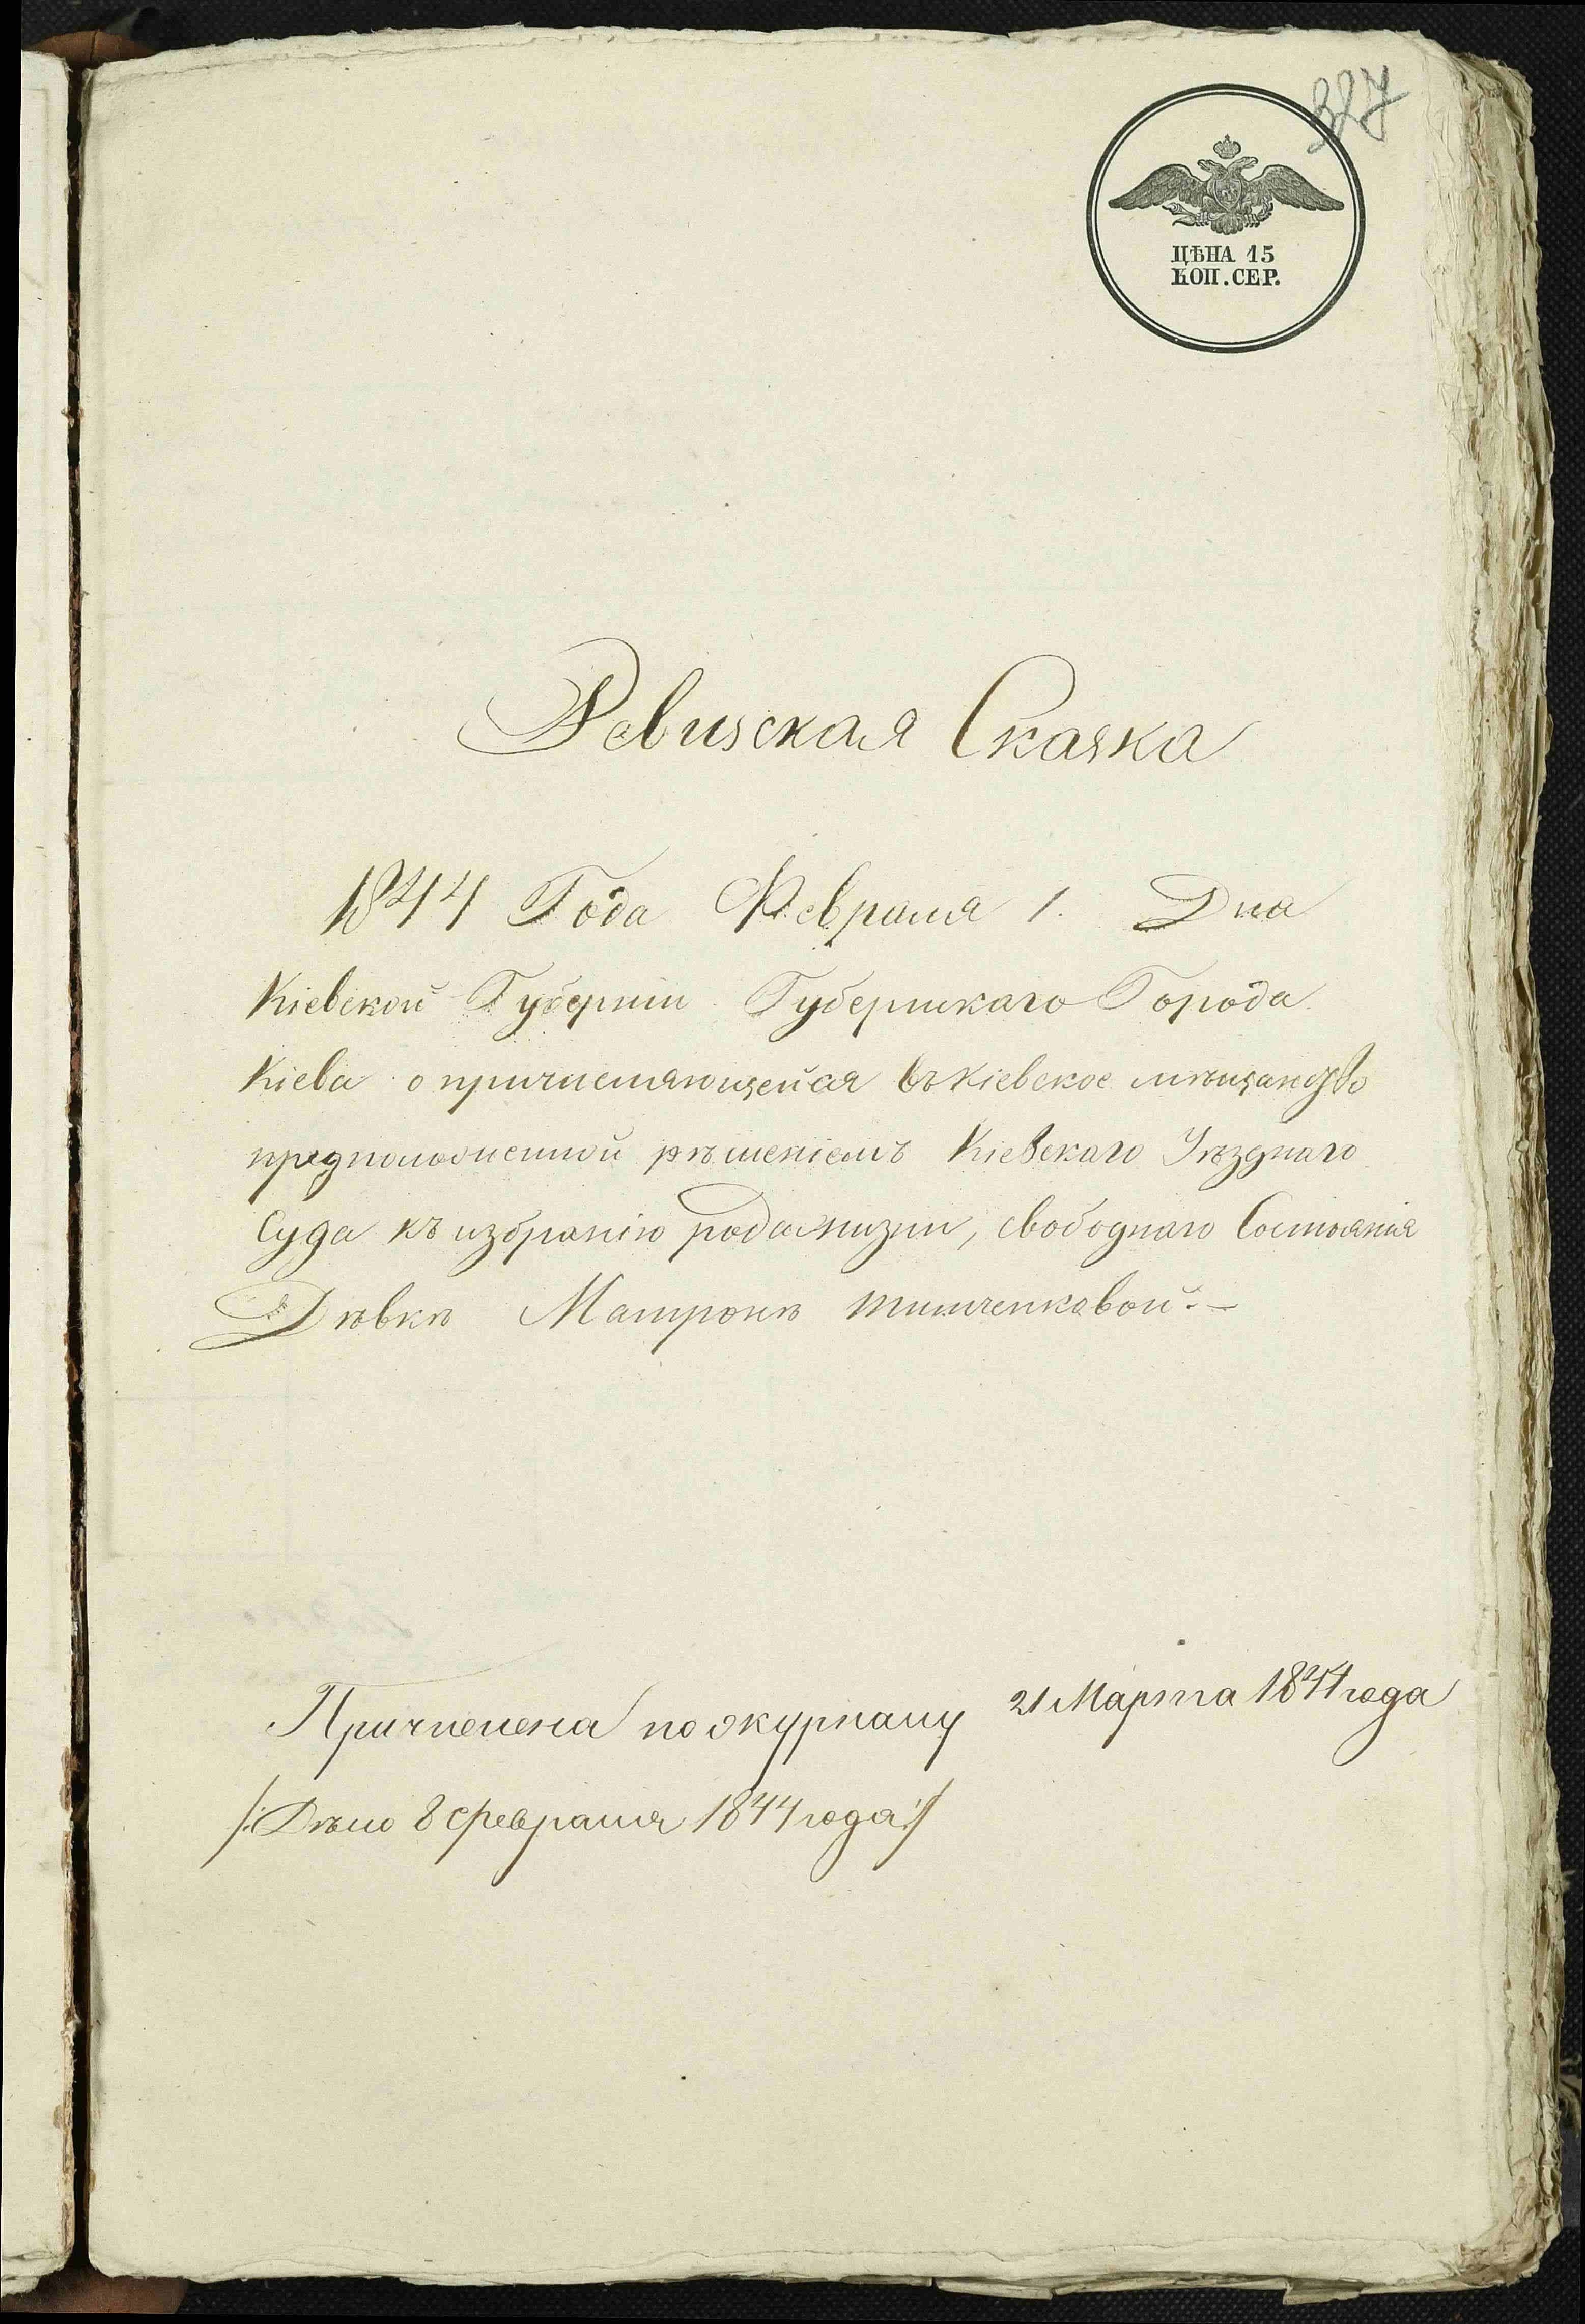 327
ЦѢНА 15
КОП. СЕР.
Ревизская Сказка
1844 Года Февраля 1. Дня
Кіевской Губерніи Губернскаго Города
Кіева о причисляющейся въ Кіевское мѣщанство
предположенной рѣшеніемъ Кіевскаго Уѣзднаго
Суда къ избранію рода жизни, свободнаго Состоянія
Дѣвкѣ Матронѣ Тимченковой.—
Причислена по журналу 21 Марта 1844 года
/:Дѣло 8 февраля 1844 года:/